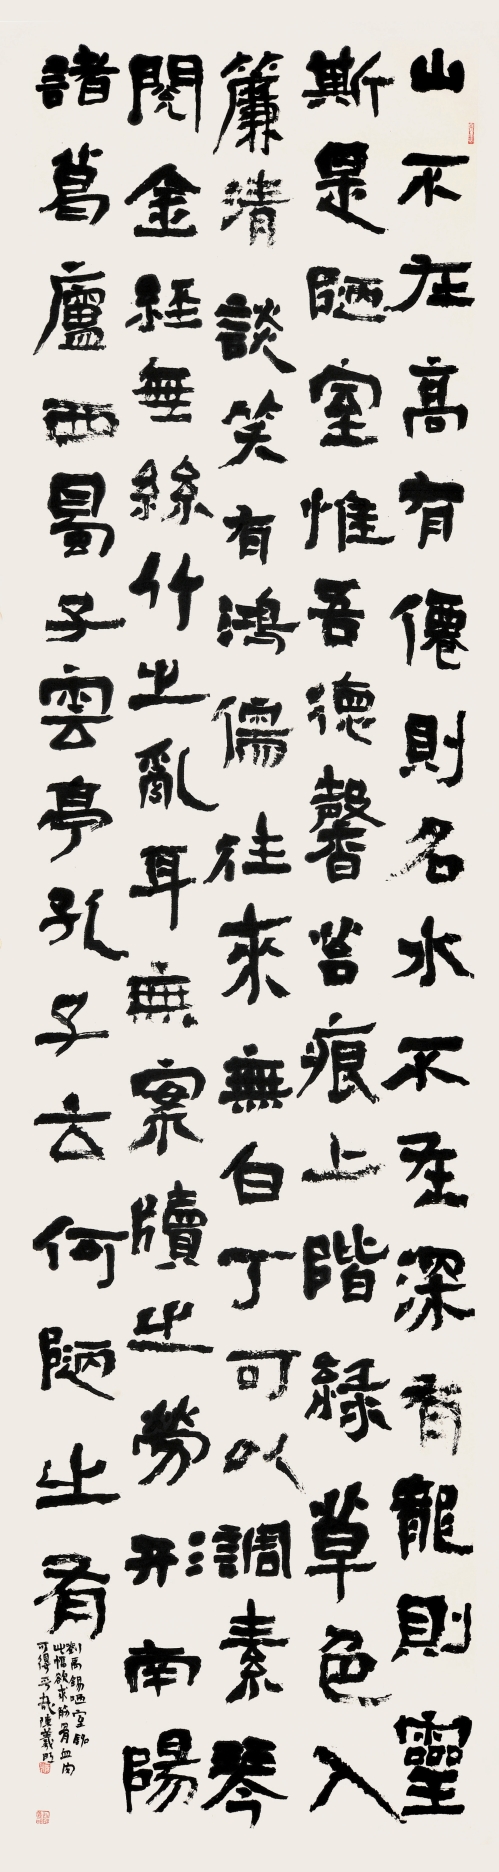 山不在高有僊則名水不在深有龍則靈
斯是陋室惟吾德馨苔痕上階綠草色入
簾清談笑有鴻儒往來無白丁可以調素琴
閱金經無絲竹之亂耳無案牘之勞形南陽
諸葛廬西蜀子雲亭孔子云何陋之有
劉禹錫陋室銘
此幅欲求筋骨血肉
可得乎哉陳羲明